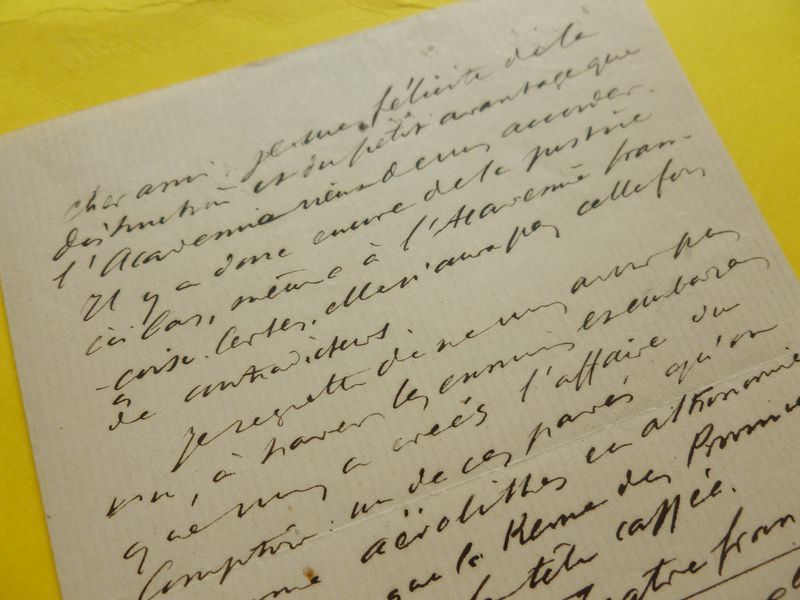 cher ami. Je vous félicite de la
distinction et du petit avantage que
l'Académie vient de vous accorder.
Il y a donc encore de la justice
ici bas, même à l'Académie fran-
-çaise. Certes, elle n'aura pas cette fois
de contradicteurs.
Je regrette de ne vous avoir pas
vu, à travers les ennuis et embarras
que nous a créés l'affaire du
Comptoir. un de ces pavés qu'on
aërolithes en astronomie
que la Revue des
la tête cassée.